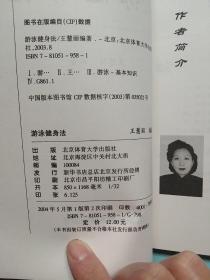 图书在版编目(CIP)数据
游泳健身法/王慧丽编著．-北京：北京体育大学出版
社，2003.8
ISBN 7-81051-958-1
Ⅰ.游… Ⅱ.王… Ⅲ.游泳-基本知识
Ⅳ.G861.1
中国版本图书馆CIP数据核字(2003)第 号
游泳健身法
王慧丽
出版 北京体育大学出版社
地址 北京海淀区中关村北大街
邮编 100084
发行 新华书店总店北京发行所经销
印刷 北京市昌平阳坊精工印刷厂
开本 850×1168毫米 1/32
印张 6.125
2004年5月第1版第2次印刷
定价 12.00元
(本书因装订质量不合格本社发行部负责调换)
作者简介